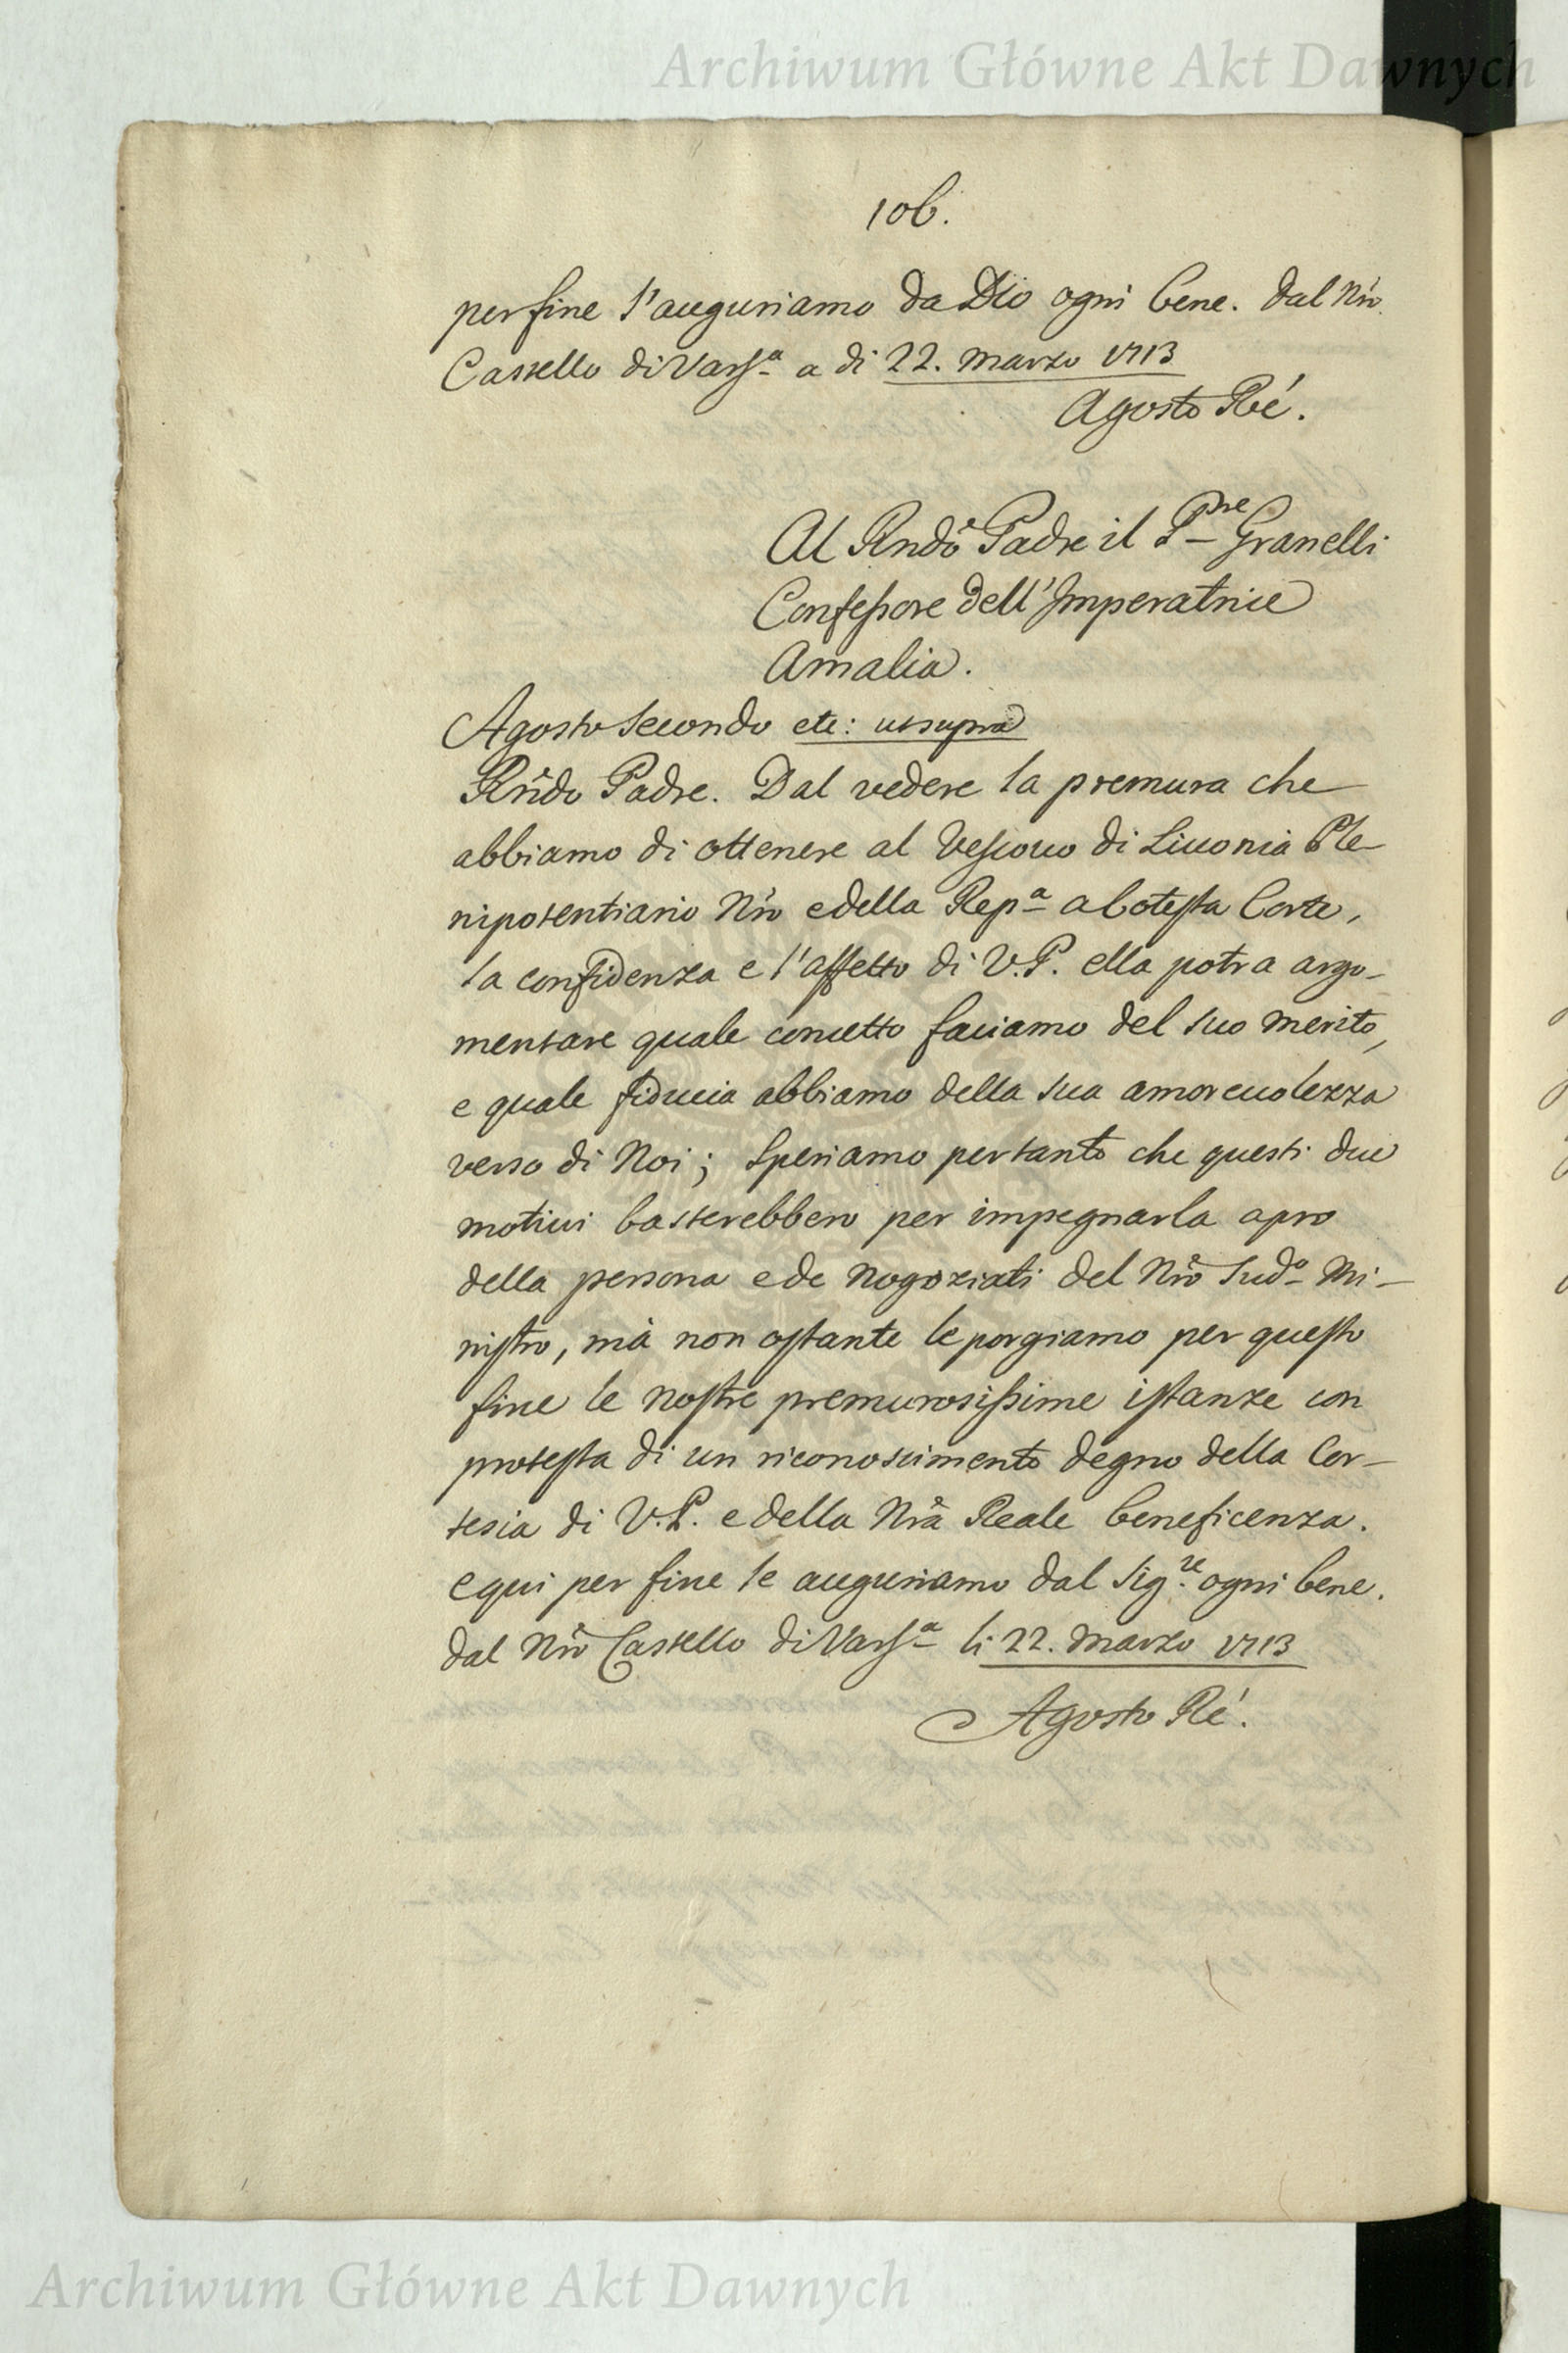 Archiwum Główne Akt Dawnych
106.
per fine l'auguriamo da Dio ogni bene. Dal Nrô
Castello di Vars.ª a di 22. Marzo 1713
Agosto Ré.
Al Rndô Padre il P.re Granelli
Confessore dell'Imperatrice
Amalia.
Agosto Secondo etc: ut supra
Rñdo Padre. Dal vedere la premura che
abbiamo di ottenere al Vescouo di Liuonia Ple-
nipotentiario Nrô e della Rep.ª a cotesta Corte,
la confidenza e l'affetto di V.P. ella potra argo-
mentare quale concetto facciamo del suo merito,
e quale fiducia abbiamo della sua amoreuolezza
verso di Noi; Speriamo pertanto che questi due
motiui basterebbero per impegnarla a pro
della persona e de Nogoziati del Nrô Sud.º Mi-
nistro, mà non ostante le porgiamo per questo
fine le nostre premurosissime istanze con
protesta di un riconoscimento degno della Cor-
tesia di V.P. e della Nrâ Reale beneficenza.
e qui per fine le auguriamo dal Sig.re ogni bene.
dal Nrô Castello di Vars.ª li 22. Marzo 1713
Agosto Ré.
Archiwum Główne Akt Dawnych